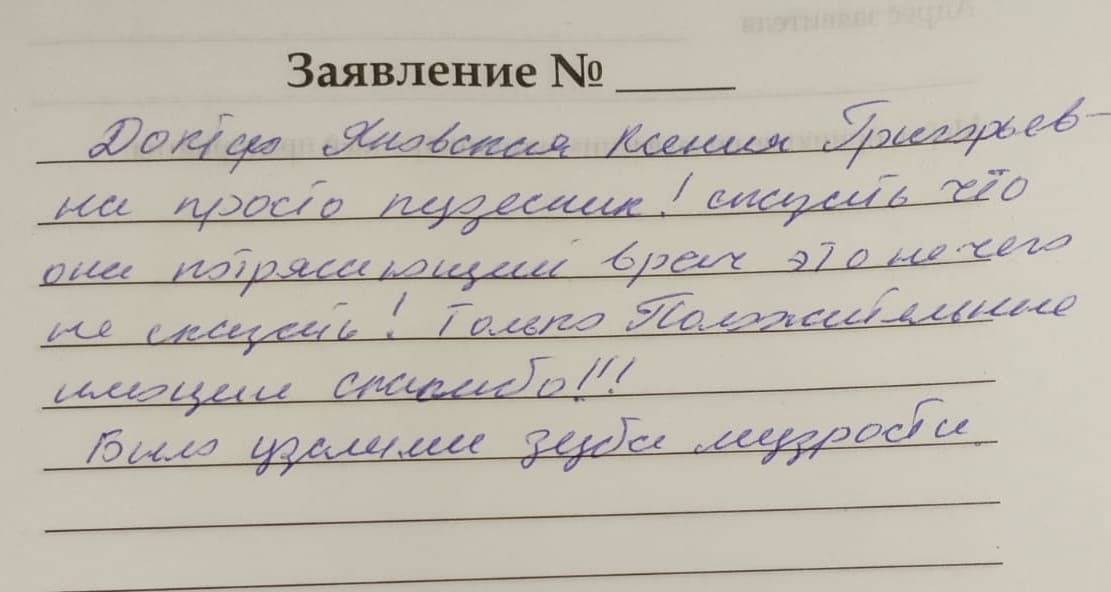 Заявление № _____
Доктор Яновская Ксения Григорьев-
на просто чудесник! сказать что
она потрясающий врач это не чего
не сказать! Только Положительные
эмоции спасибо!!!
Было удаление зуба мудрости.